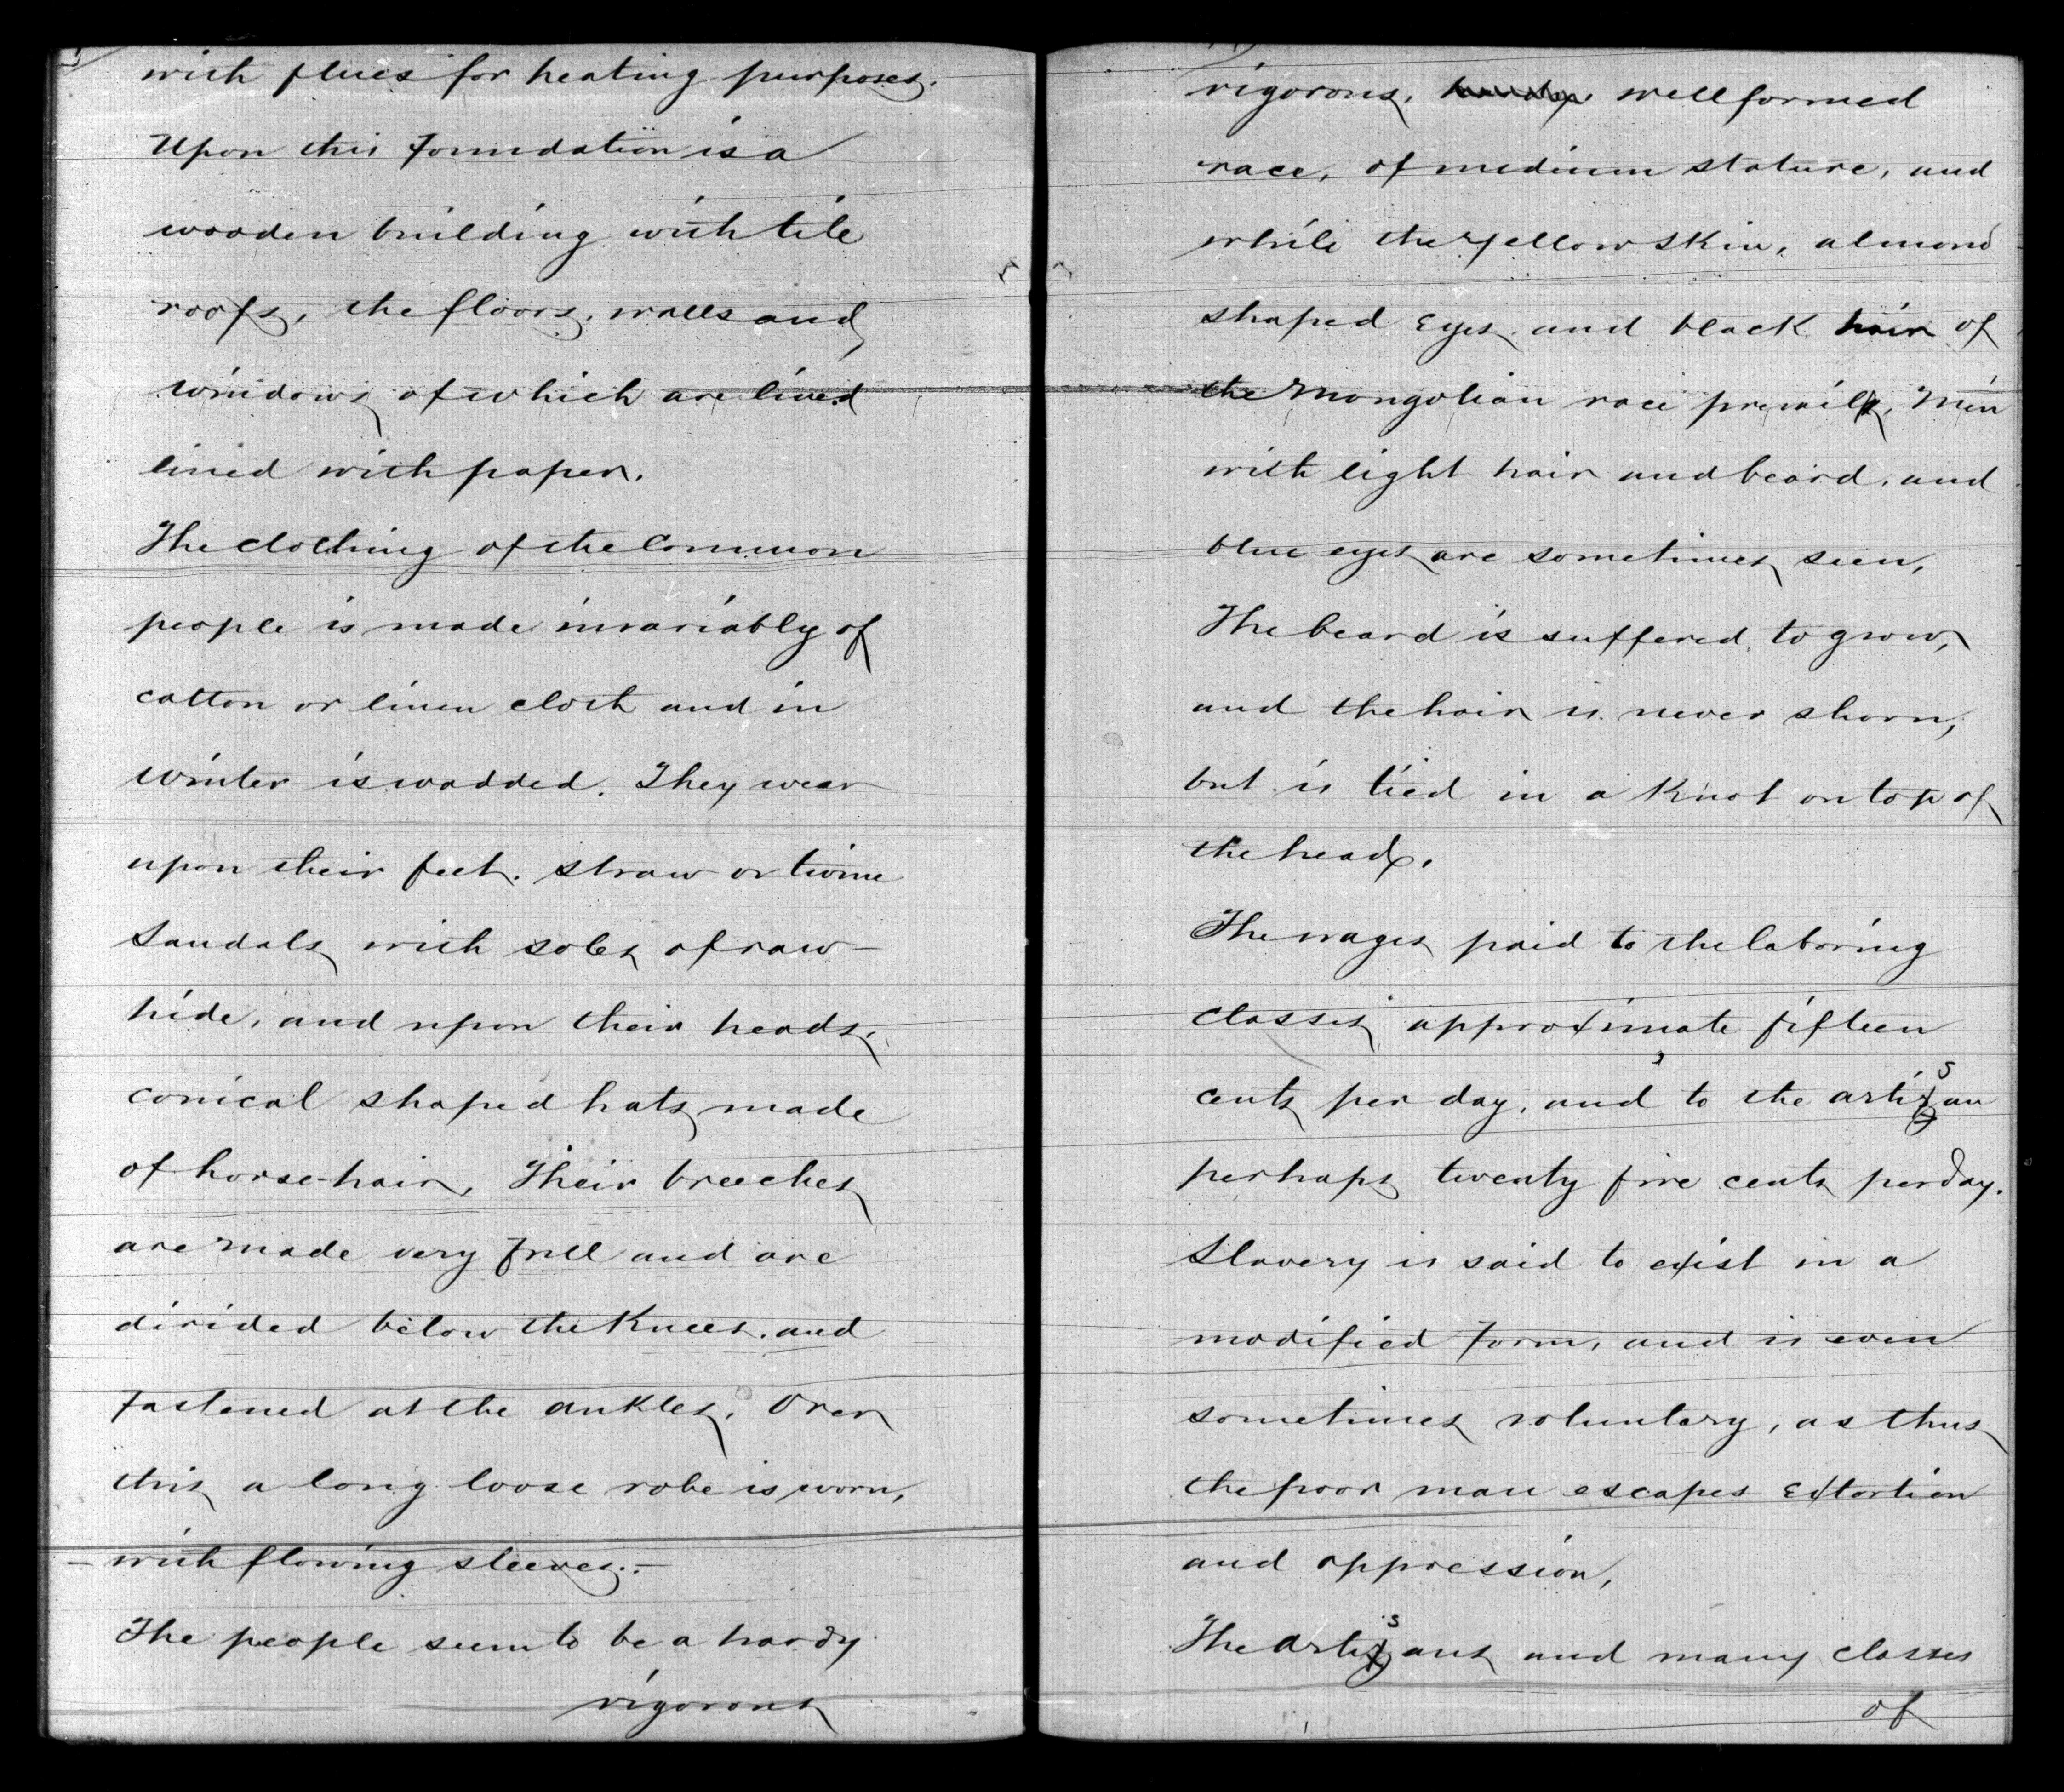 with flues for heating purposes.
Upon this foundation is a
wooden building with tile
roofs, the floors, walls and
windows of which are lined
lined with paper.
The clothing of the common
people is made invariably of
cotton or linen cloth and in
winter is wadded. They wear
upon their feet. straw or twine
Sandals with soles of raw-
hide, and upon their heads,
conical shaped hats made
of horse-hair, Their breeches
are made very full and are
divided below the knees, and
fastened at the ankles. Over
this a long loose robe is worn,
- with flowing sleeves.-
The people seem to be a hardy
vigorous
vigorous, wellformed
race, of medium stature, and
while the yellow skin, almond
shaped eyes and black hair of
the Mongolian race prevail, Men
with light hair and beard, and
blue eyes are sometimes seen,
The beard is suffered to grow,
and the hair is never shorn,
but is tied in a knot on top of
the head.
The wages paid to the laboring
classes approximate fifteen
cents per day, and to the artisan
perhaps twenty five cents per day.
Slavery is said to exist in a
modified form, and is even
sometimes voluntary, as thus
the poor man escapes extortion
and oppression,
The artisans and many classes
of